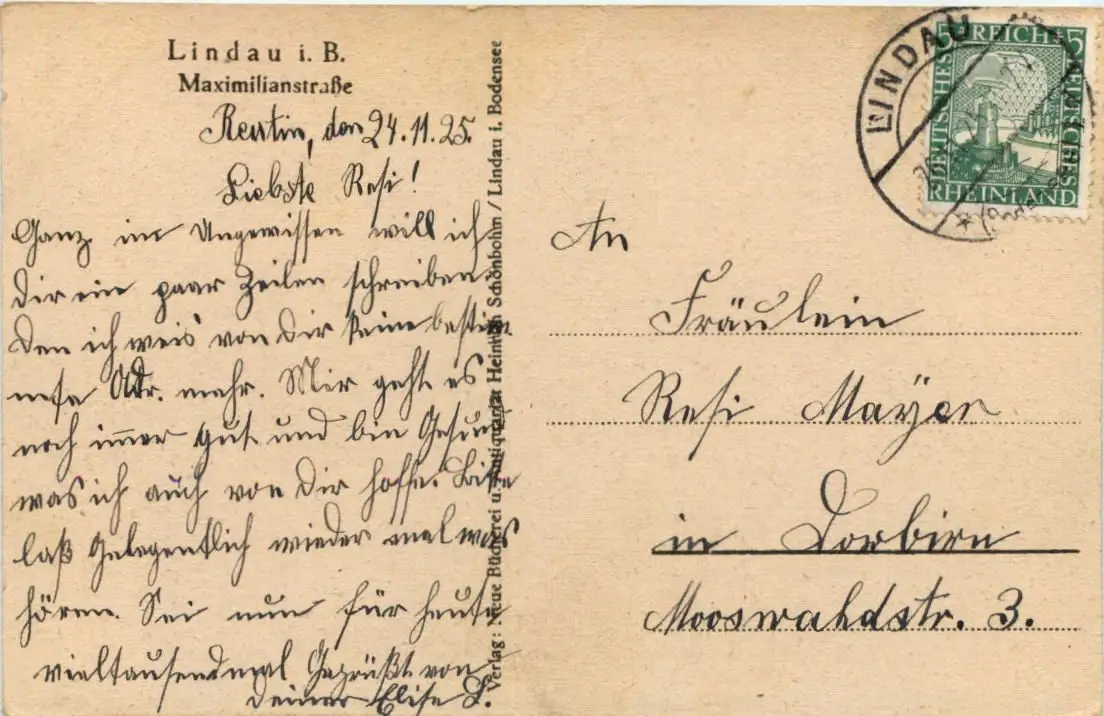 Lindau i. B.
Maximilianstraße
Reutin, den 24.11.25.
Liebste Resi!
Ganz im Ungewissen will ich
Dir ein paar Zeilen schreiben.
Den ich weis von Dir keine bestim
mte Adr. mehr. Mir geht es
noch immer gut und bin Gesund
was ich auch von Dir hoffe. Bitte
laß Gelegentlich wieder mal was
hören. Sei nun für heute
vieltausendmal Gegrüßt von
Deiner Elise L.
Verlag: Neue Bücherei u. Antiquariat Heinrich Schönbohm / Lindau i. Bodensee
LINDAU
DEUTSCHES REICH
5 5
DEUTSCHES REICH
RHEINLAND
An
Fräulein
Resi Mayer
in Dorbirn
Mooswahdstr. 3.